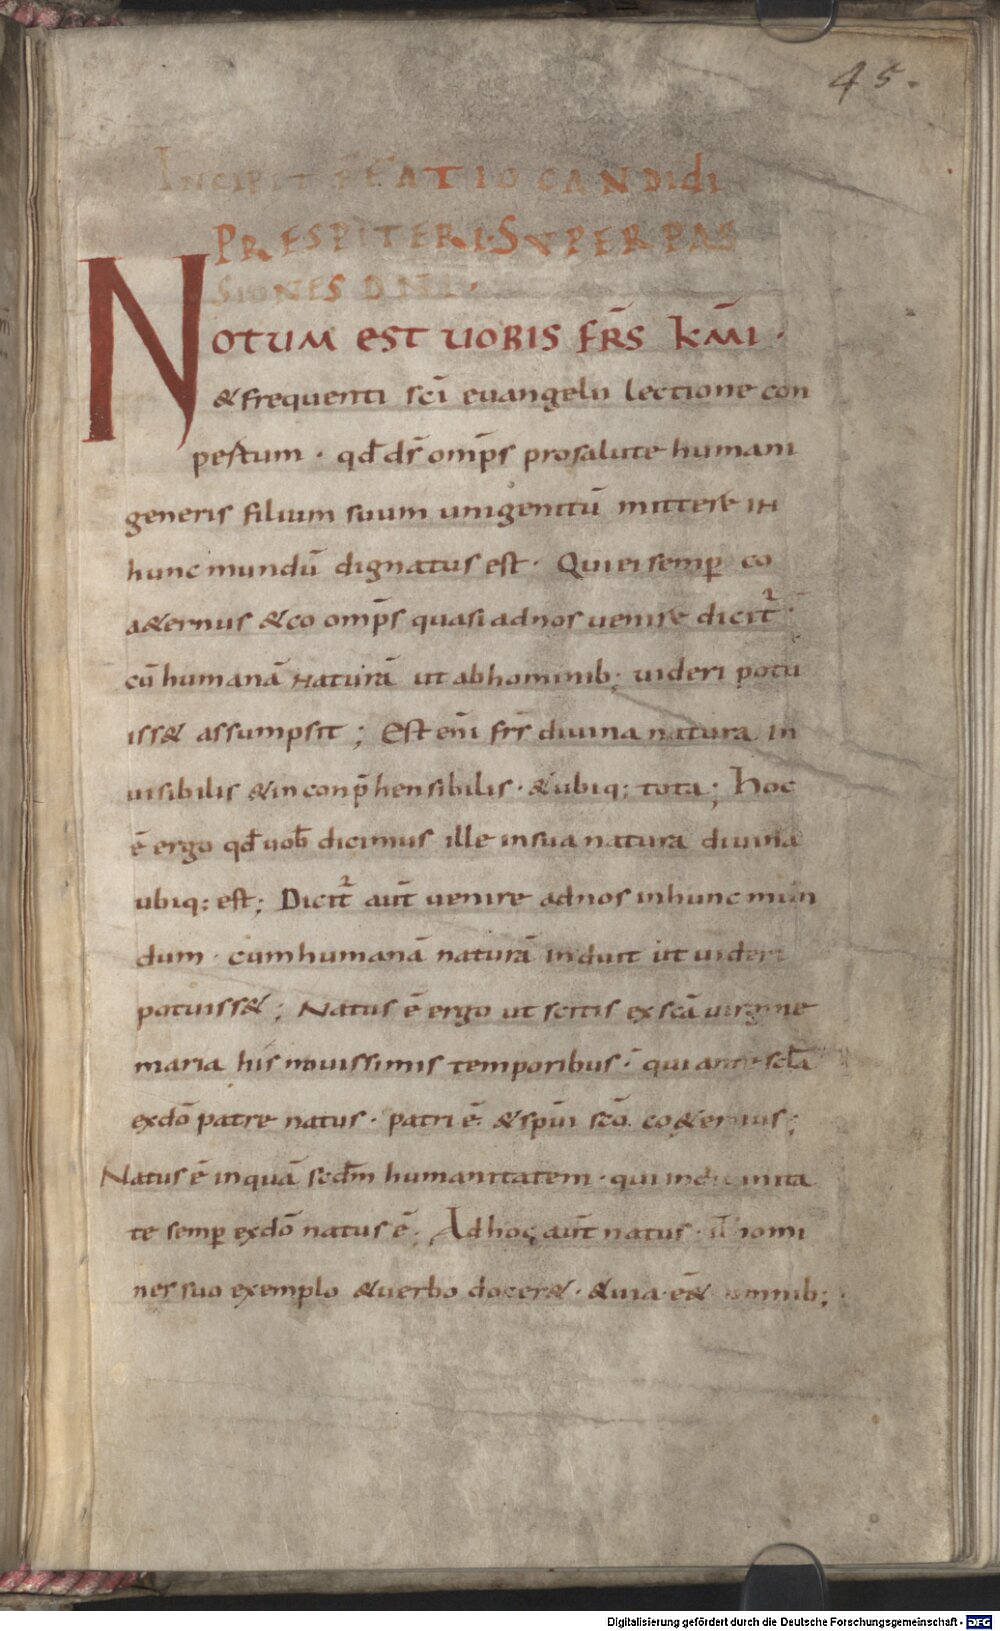 45.
INCIPIT CANDIDI
PRESPITERI. SUPER PAS
SIONES DNI.
NOTUM EST UOBIS FR̄S K̄MI.
& frequenti sc̄i euangelii lectione con
pertum. qđ ds̄ omp̄s pro salute humani
generis filium suum unigenitū mittere in
hunc mundū dignatus est. Qui ei semp̲ co
a&ernus & co omp̄s quasi ad nos uenire dicit᷑.
cū humanā naturā ut ab hominib; uideri potu
iss& assumpsit; Est eni̅ frs̄ diuina natura in
uisibilis & inconp̄hensibilis. & ubiq; tota; Hoc
ē ergo qđ uob̄ dicimus ille in sua natura diuina
ubiq; est; Dicit᷑ aut̄ uenire ad nos in hunc mun
dum. cum humanā naturā induit ut uideri
potuiss&; Natus ē ergo ut scitis ex scā uirgine
maria his nouissimis temporibus. qui ante sclā
ex dō patre natus. patri ē. & sp̄ui scō. co&ernus;
Natus ē inquā scdm̄ humanitatem. qui in diuinita
te semp̲ ex dō natus ē. Ad hoc aut̄ natus. homi
nes suo exemplo & uerbo docer&. & uia eēt omnib;
Digitalisierung gefördert durch die Deutsche Forschungsgemeinschaft - DFG